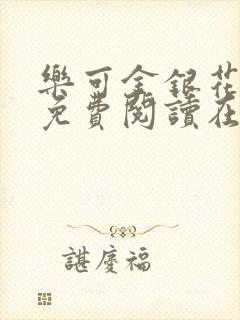 樂可金銀花
免費閱讀在
諶慶福